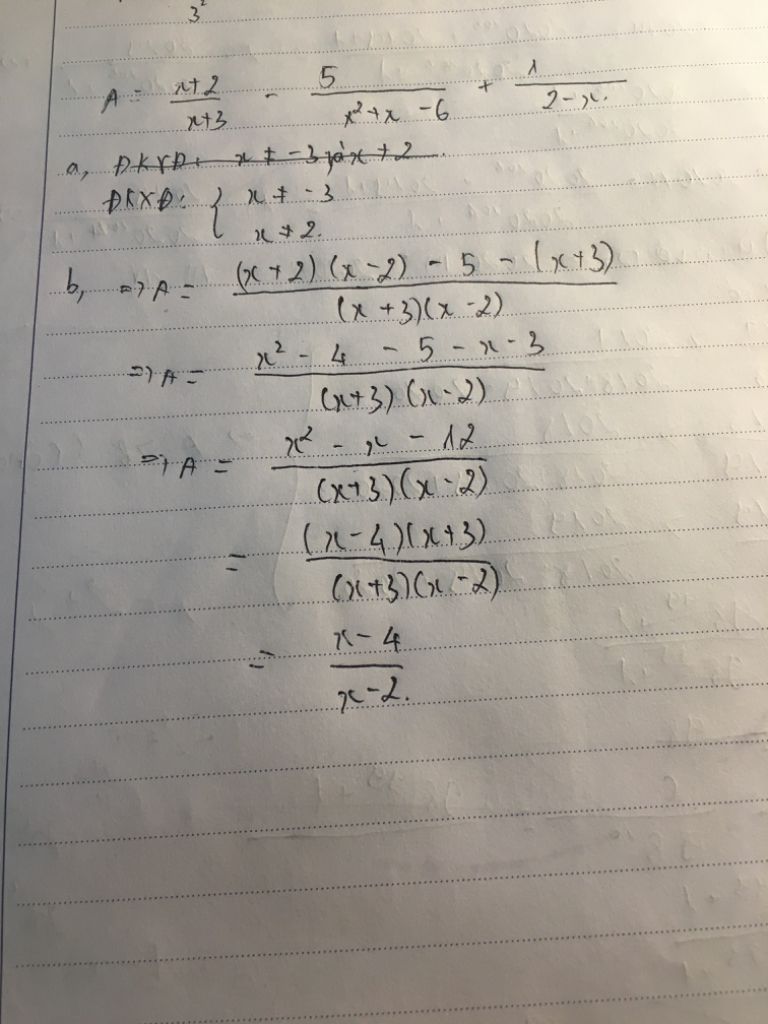 3²
A = (x+2)/(x+3) - 5/(x²+x-6) + 1/(2-x).
a, ĐKXĐ: x ≠ -3 và x ≠ 2.
ĐKXĐ: { x ≠ -3
x ≠ 2.
b, => A = ((x+2)(x-2) - 5 - (x+3))/((x+3)(x-2))
=> A = (x² - 4 - 5 - x - 3)/((x+3)(x-2))
=> A = (x² - x - 12)/((x+3)(x-2))
= ((x-4)(x+3))/((x+3)(x-2))
= (x-4)/(x-2).